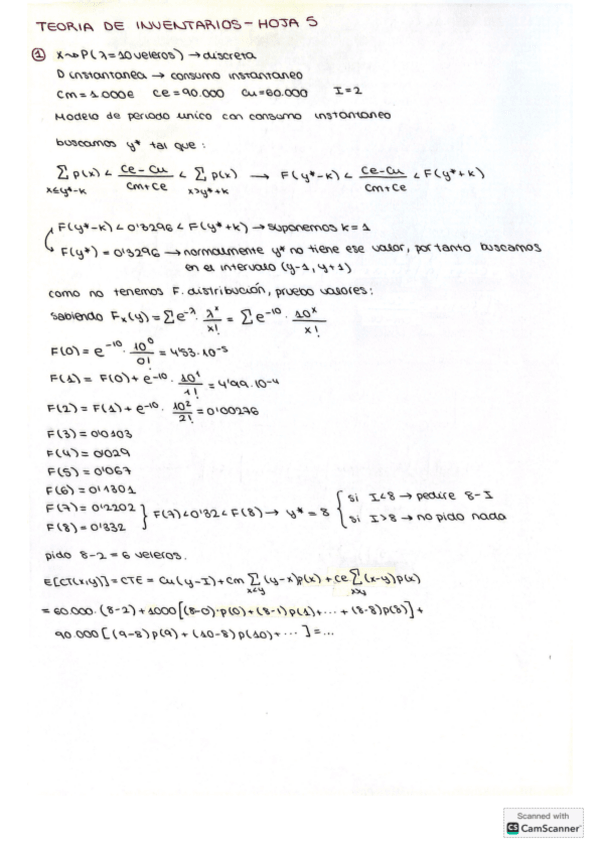 TEORIA DE INVENTARIOS - HOJA 5
① X~P(λ=10 veleros) → discreta
D instantanea → consumo instantaneo
Cm = 1.000€ Ce = 90.000 Cu = 60.000 I = 2
Modelo de periodo unico con consumo instantaneo
buscamos y* tal que:
∑ p(x) < (Ce-Cu)/(Cm+Ce) < ∑ p(x) → F(y*-k) < (Ce-Cu)/(Cm+Ce) < F(y*+k)
x≤y*-k x>y*+k
F(y*-k) < 0'3296 < F(y*+k) → suponemos k=1
F(y*) = 0'3296 → normalmente y* no tiene ese valor, por tanto buscamos
en el intervalo (y-1, y+1)
como no tenemos F. distribución, pruebo valores:
Sabiendo Fx(y) = ∑ e^-λ · λ^x/x! = ∑ e^-10 · 10^x/x!
F(0) = e^-10 · 10^0/0! = 4'53·10^-5
F(1) = F(0) + e^-10 · 10^1/1! = 4'99·10^-4
F(2) = F(1) + e^-10 · 10^2/2! = 0'00276
F(3) = 0'0103
F(4) = 0'029
F(5) = 0'067
F(6) = 0'1301
F(7) = 0'2202
F(8) = 0'332
} F(7) < 0'32 < F(8) → y* = 8 { si I<8 → pedire 8-I
si I>8 → no pido nada
pido 8-2 = 6 veleros.
E[CT(x,y)] = CTE = Cu(y-I) + Cm ∑ (y-x)p(x) + Ce ∑ (x-y)p(x)
x≤y x>y
= 60.000·(8-2) + 1000[(8-0)·p(0) + (8-1)p(1) + ··· + (8-8)p(8)] +
90.000[(9-8)p(9) + (10-8)p(10) + ···] = ...
Scanned with
CS CamScanner